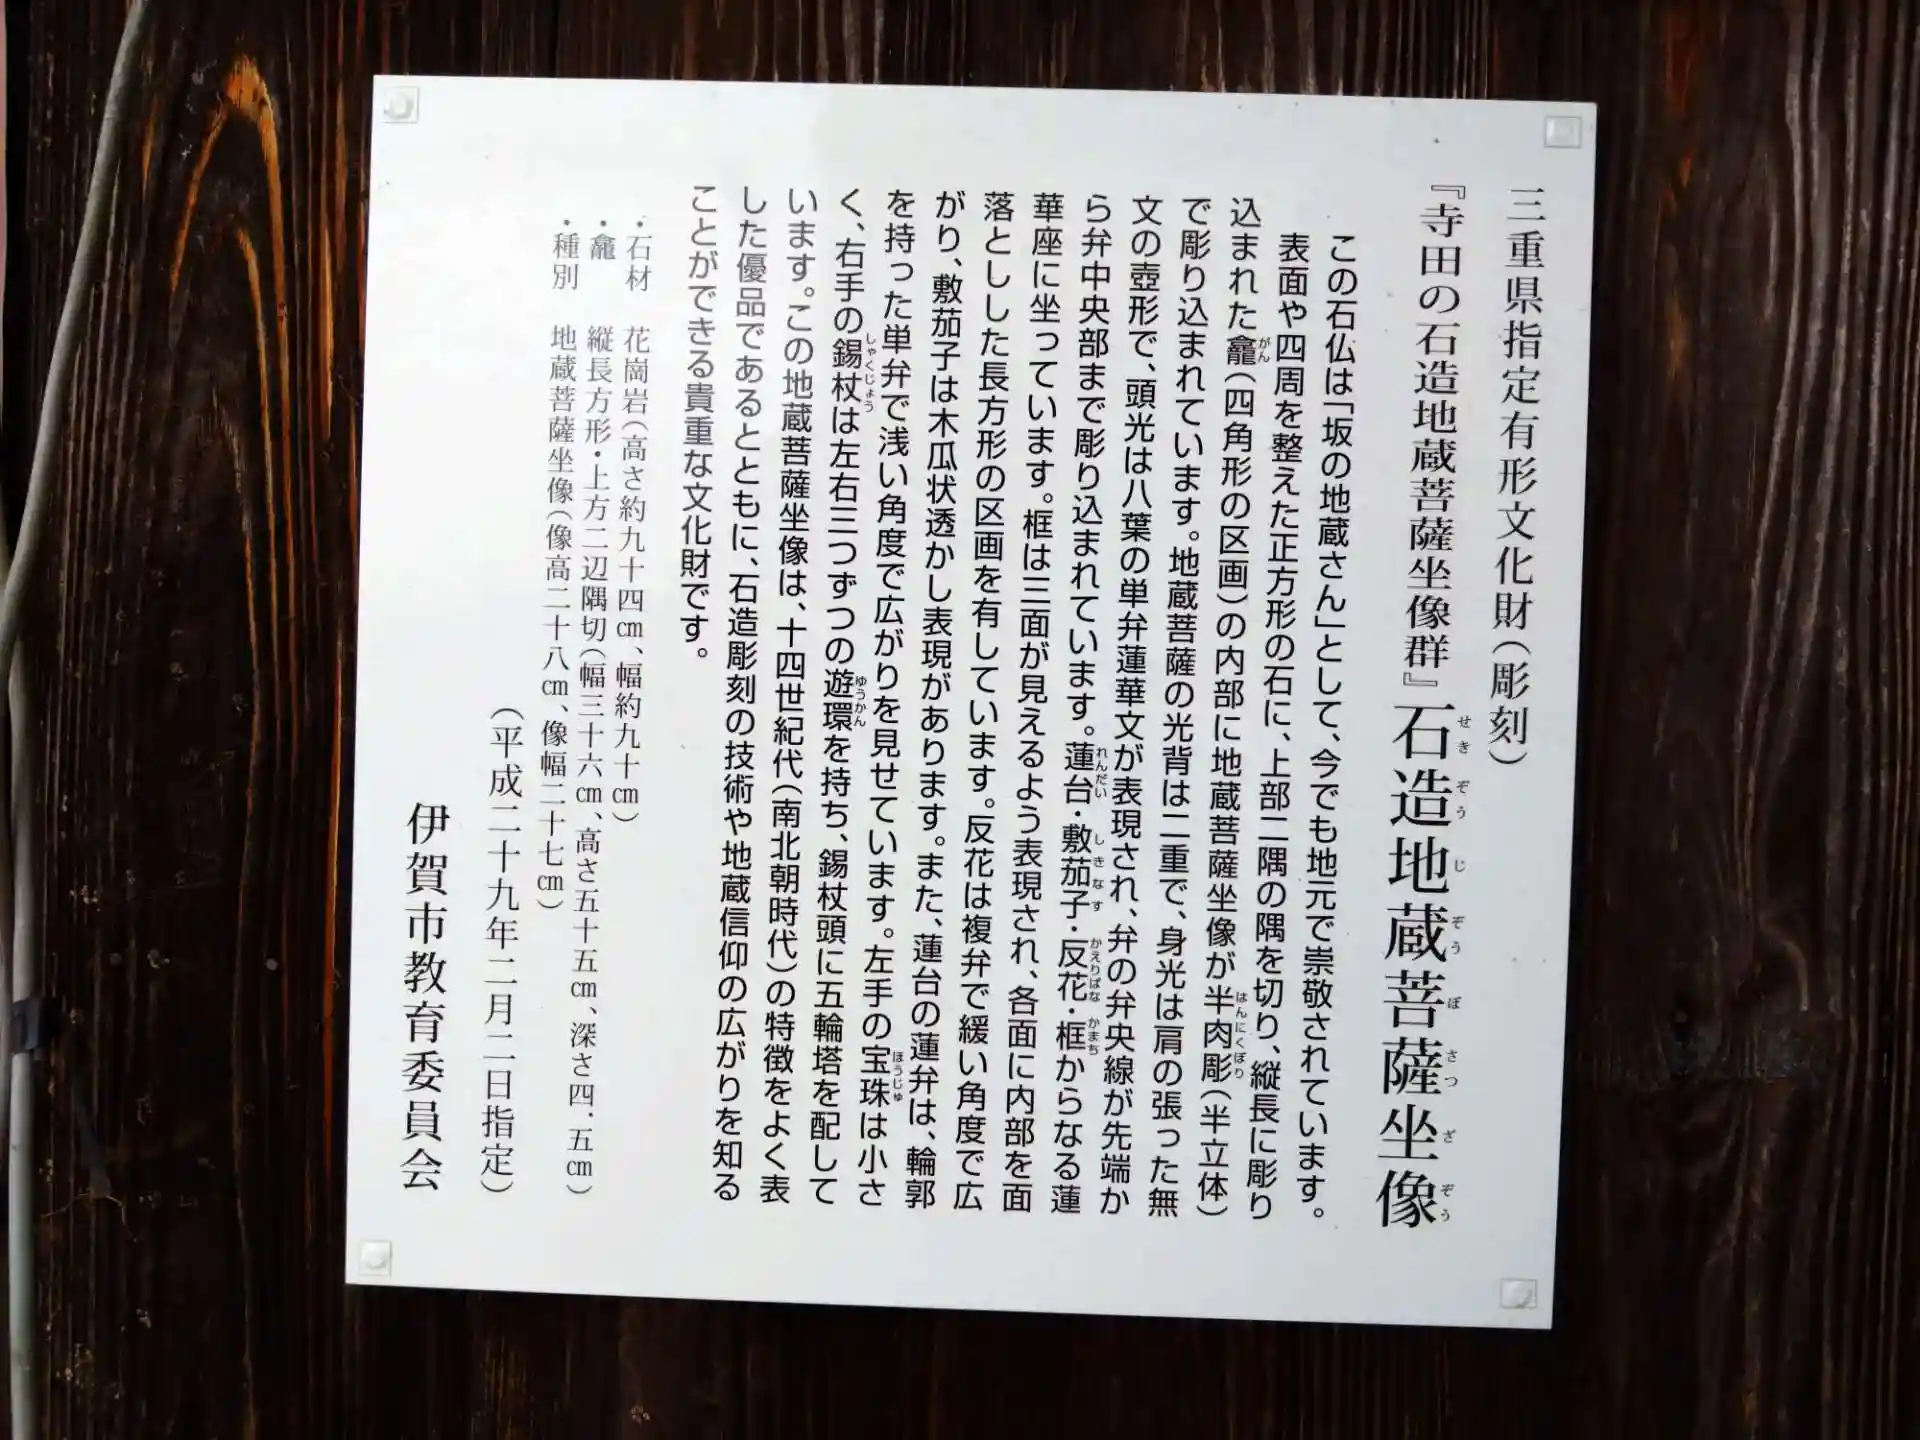 三重県指定有形文化財（彫刻）
『寺田の石造地蔵菩薩坐像群』石造地蔵菩薩坐像
せきぞうじぞうぼさつざぞう
この石仏は「坂の地蔵さん」として、今でも地元で崇敬されています。
表面や四周を整えた正方形の石に、上部二隅の隅を切り、縦長に彫り
込まれた龕（四角形の区画）の内部に地蔵菩薩坐像が半肉彫（半立体）
がん
はんにくぼり
で彫り込まれています。地蔵菩薩の光背は二重で、身光は肩の張った無
文の壺形で、頭光は八葉の単弁蓮華文が表現され、弁の弁央線が先端か
ら弁中央部まで彫り込まれています。蓮台・敷茄子・反花・框からなる蓮
れんだい
しきなす
かえりばな
かまち
華座に坐っています。框は三面が見えるよう表現され、各面に内部を面
落としした長方形の区画を有しています。反花は複弁で緩い角度で広
がり、敷茄子は木瓜状透かし表現があります。また、蓮台の蓮弁は、輪郭
を持った単弁で浅い角度で広がりを見せています。左手の宝珠は小さ
ほうじゅ
く、右手の錫杖は左右三つずつの遊環を持ち、錫杖頭に五輪塔を配して
しゃくじょう
ゆうかん
います。この地蔵菩薩坐像は、十四世紀代（南北朝時代）の特徴をよく表
した優品であるとともに、石造彫刻の技術や地蔵信仰の広がりを知る
ことができる貴重な文化財です。
・石材　花崗岩（高さ約九十四㎝、幅約九十㎝）
・龕　縦長方形・上方二辺隅切（幅三十六㎝、高さ五十五㎝、深さ四．五㎝）
・種別　地蔵菩薩坐像（像高二十八㎝、像幅二十七㎝）
（平成二十九年二月二日指定）
伊賀市教育委員会